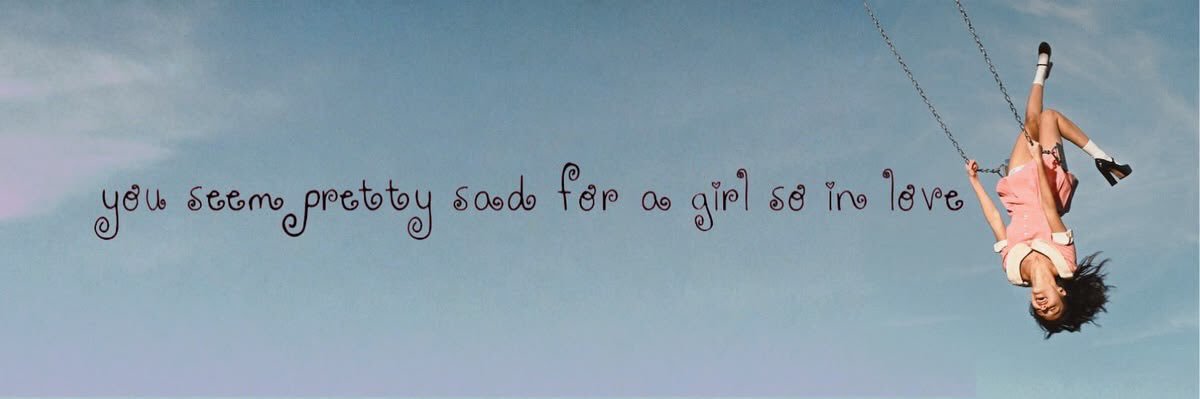 you seem pretty sad for a girl so in love